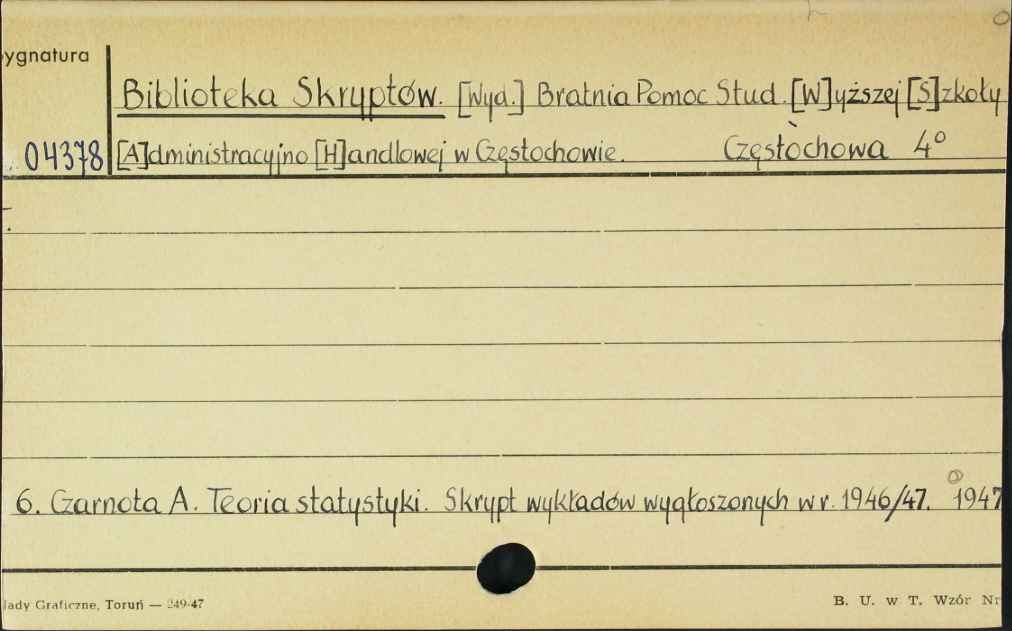 ygnatura
Biblioteka Skryptów. [Wyd.] Bratnia Pomoc Stud. [W]yższej [S]zkoły
04378 [A]dministracyjno [H]andlowej w Częstochowie. Częstochowa 4°
6. Czarnota A. Teoria statystyki. Skrypt wykładów wygłoszonych w r. 1946/47. 1947
łady Graficzne, Toruń — 249-47
B. U. w T. Wzór Nr